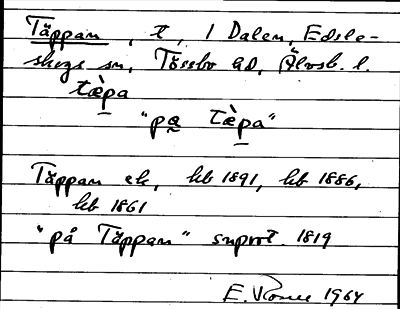 Täppan, t, i Dalen, Edsle-
skogs sn, Tössbo hd, Älvsb. l.
tæ̀pa
"pa tæ̀pa"
Täppan ek, hb 1891, hb 1886,
hb 1861
"på Täppan" snprot. 1819
E. 1964